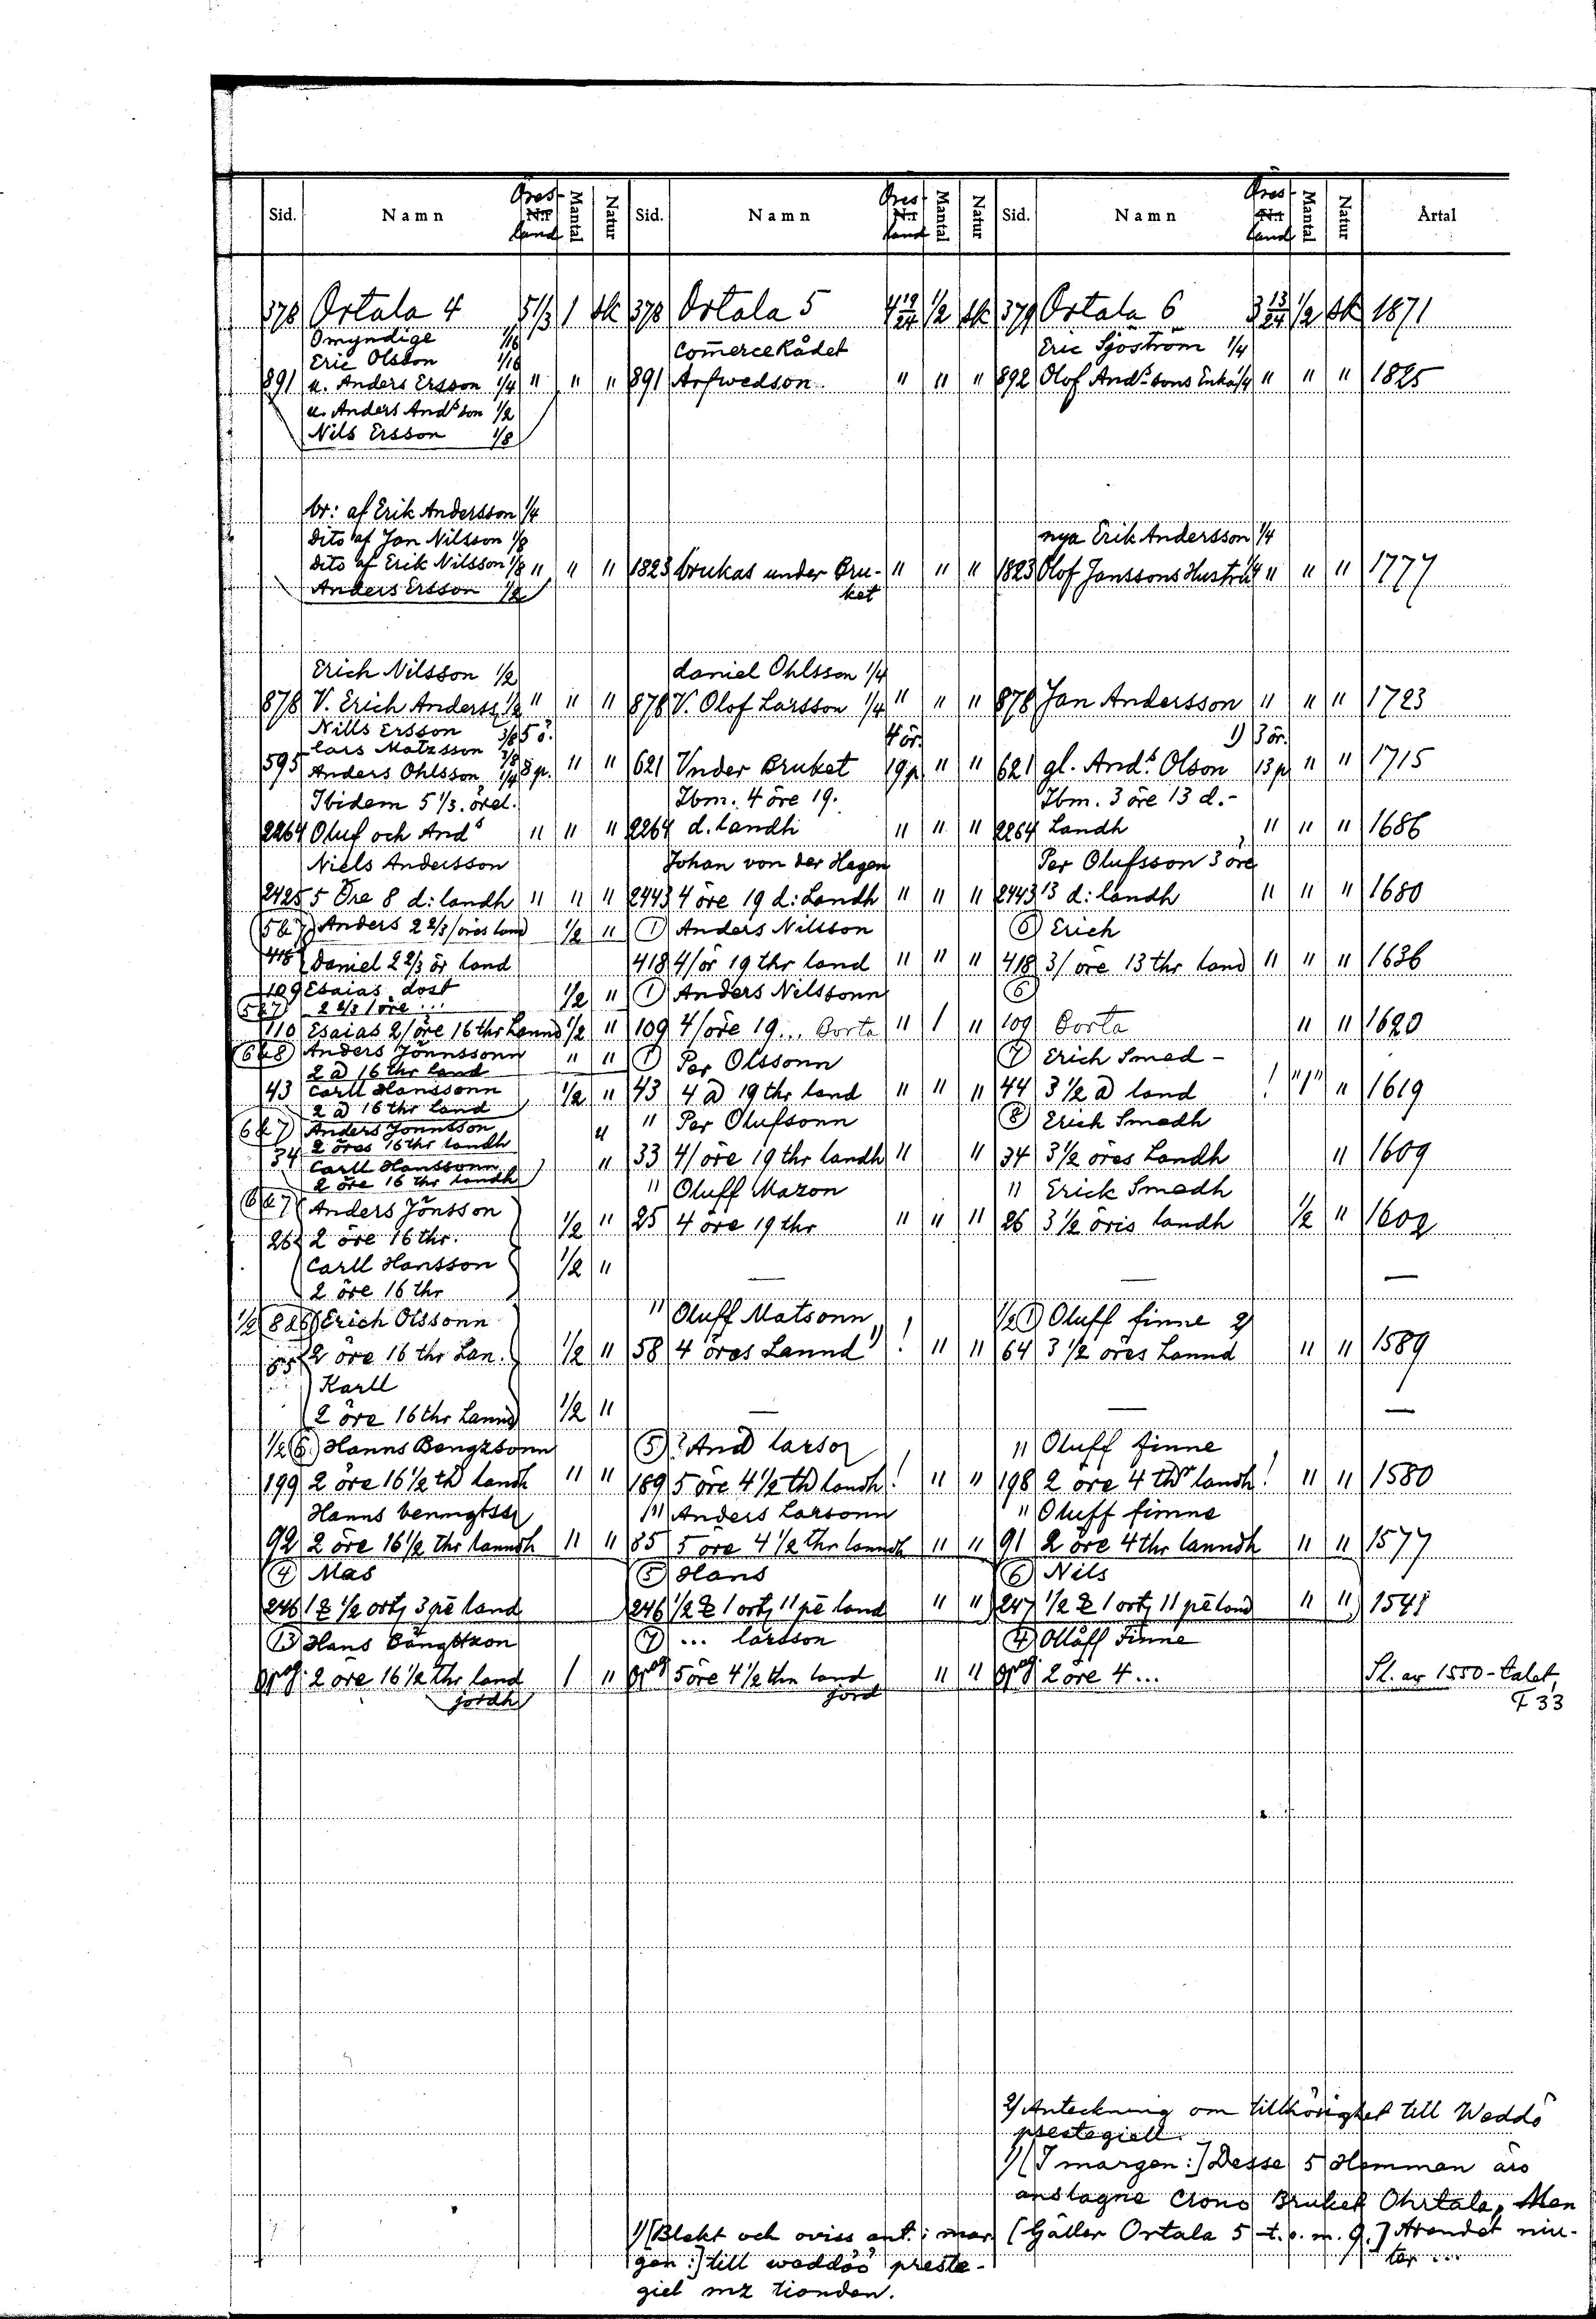 Sid. Namn Öres- Nr land Mantal Natur Sid. Namn Öres- Nr land Mantal Natur Sid. Namn Öres- Nr land Mantal Natur Årtal
378 Ortala 4 5 1/3 1 sk 378 Ortala 5 4 19/24 1/2 sk 379 Ortala 6 3 13/24 1/2 sk 1871
Omyndige 1/16
Eric Olsson 1/16 Com̄erceRådet Eric Sjöström 1/4
891 u. Anders Ersson 1/4 " " " 891 Arfwedson " " " 892 Olof And.ssons Enka 1/4 " " " 1825
u. Anders Andsson 1/2
Nils Ersson 1/8
br: af Erik Andersson 1/4
dito af Jan Nilsson 1/8 nya Erik Andersson 1/4
dito af Erik Nilsson 1/8 " " " 1823 brukas under Bru- " " " 1823 Olof Janssons Hustru 1/4 " " " 1777
Anders Ersson 1/2 ket
Erich Nilsson 1/2 daniel Ohlsson 1/4
878 V. Erich Anderss. 1/2 " " " 878 V. Olof Larsson 1/4 " " " 878 Jan Andersson " " " 1723
Nills Ersson 3/8 5 ö. 4 ör. 1) 3 ör.
Lars Matzsson 3/8
595 Anders Ohlsson 1/4 8 p. " " 621 Vnder Bruket 19 p " " 621 gl. Ands Olson 13 p " " 1715
Ibidem 5 1/3. örel. Ibm. 4 öre 19. Ibm. 3 öre 13 d.-
2264 Oluf och Ands " " " 2264 d. Landh " " " 2264 Landh " " " 1686
Niels Andersson Johan von der Hagen Per Olufsson 3 öre
2425 5 Öre 8 d: landh " " " 2443 4 öre 19 d: Landh " " " 2443 13 d: landh " " " 1680
(5&7) Anders 2 2/3/öres land 1/2 " (1) Anders Nilsson (6) Erich
418 Daniel 2 2/3 ör land 418 4/ör 19 thr land " " " 418 3/öre 13 thr land " " " 1636
109 Esaias dost
(5&7) 2 2/3/öre ... 1/2 " (1) Anders Nelssonn (6)
110 Esaias 2/öre 16 thr Lannd 1/2 " 109 4/öre 19... Borta " 1 " 109 Borta " " 1620
(6&8) Anders Jönnssonn " " (1) Per Olssonn (7) Erich Smed -
2 a 16 thr land
43 Carll Hanssonn 1/2 " 43 4 a 19 thr land " " " 44 3 1/2 a land ! "1" " 1619
2 a 16 thr land
(6&7) Anders Jonnsson " " Per Olufsonn (8) Erich Smedh
2 öres 16 thr landh
34 Carll Hanssonn " 33 4/öre 19 thr landh " " 34 3 1/2 öres Landh " 1609
2 öre 16 thr landh
(6&7) Anders Jönsson " Oluff Mazon " Erick Smedh
26 2 öre 16 thr. 1/2 " 25 4 öre 19 thr " " " 26 3 1/2 öris landh 1/2 " 1602
Carll Hansson 1/2 " — — —
2 öre 16 thr
1/2 (8&6) Erich Olssonn " Oluff Matsonn 1/2 (1) Oluff finne 2)
65 2 öre 16 thr Lan. 1/2 " 58 4 öres Lannd 1) ! " " 64 3 1/2 öres Lannd " " 1589
Karll
2 öre 16 thr Lannd 1/2 " — — —
1/2 (6) Hanns Bengzsonn (5)? And larson " Oluff finne
199 2 öre 16 1/2 th landh " " 189 5 öre 4 1/2 th landh! " " 198 2 öre 4 thr landh! " " 1580
Hanns benngtss " Anders Larsonn " Oluff finne
92 2 öre 16 1/2 thr lanndh " " 85 5 öre 4 1/2 thr lanndh " " 91 2 öre 4 thr lanndh " " 1577
(4) Mas (5) Hans (6) Nils
246 1/2 ortz 3 pē land 246 1/2 1 ortz 11 pē land " " 247 1/2 1 ortz 11 pē land " " 1541
(13) Hans Bängtzon (7) ... larsson (4) Ollåff Finne
opag. 2 öre 16 1/2 thr land 1 " opag 5 öre 4 1/2 thn land " " opag. 2 öre 4 ... Sl. av 1550-talet,
jordh jord F 33
2) Anteckning om tillhörighet till Weddö
prestegiell.
1) [I margen:] Desse 5 Hemman äro
anslagne Crono Bruket Ohrtala, Men
[Gäller Ortala 5 t.o.m. 9.] Arendet niu-
ter ...
1) [Blekt och oviss ant. i mar-
gen:] till weddöö preste-
giel mz tionden.